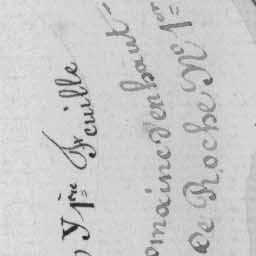 Y 1ère Feuille
omaine d'enhaut
de Roche N.° 1er